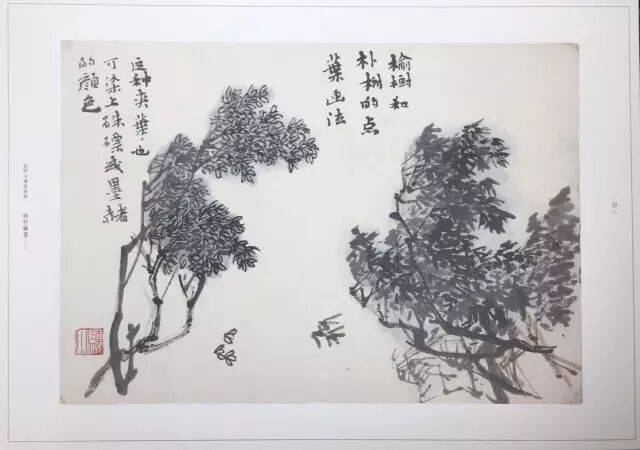 榆樹和
朴樹的点
葉画法
这种夾葉,也
可染上硃磦或墨赭
的顔色